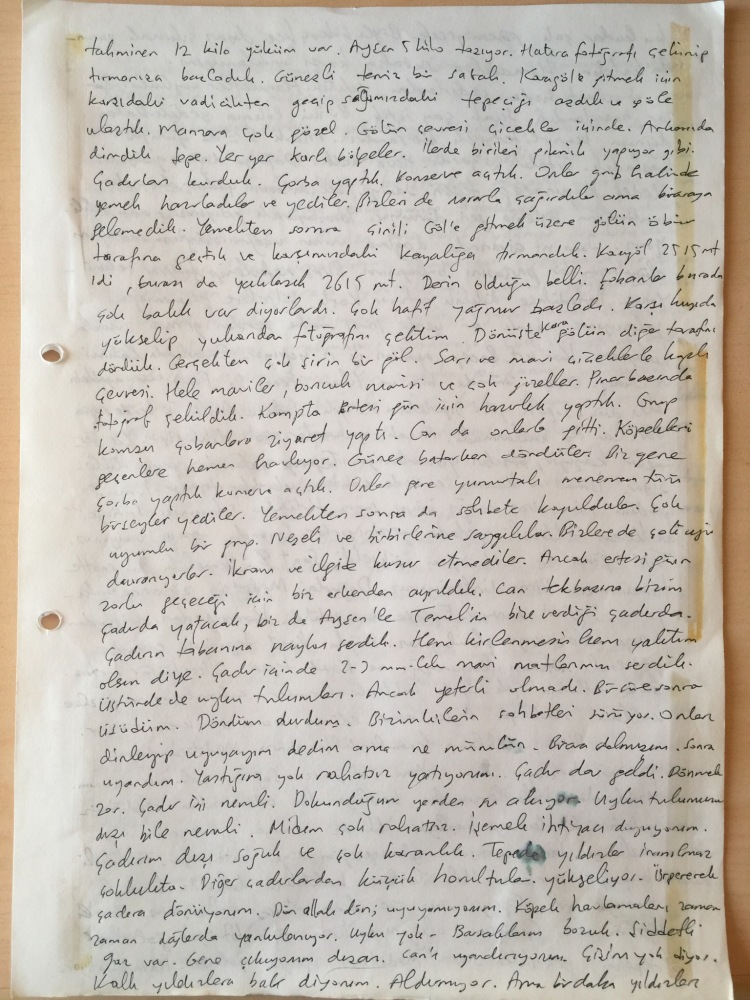 tahminen 12 kilo yüküm var. Ayşen 5 kilo taşıyor. Hatıra fotoğrafı çekinip
tırmanışa başladık. Güneşli temiz bir sabah. Karagöle gitmek için
karşıdaki vadicikten geçip sağımızdaki tepeciği aşdık ve göle
ulaştık. Manzara çok güzel. Gölün çevresi çiçekler içinde. Arkasında
dimdik tepe. Yer yer karlı bölgeler. İlerde birileri piknik yapıyor gibi.
Çadırları kurduk. Çorba yaptık, konserve açtık. Onlar grup halinde
yemek hazırladılar ve yediler. Bizleri de ısrarla çağırdılar ama biraraya
gelemedik. Yemekten sonra Çinili Göl'e gitmek üzere gölün öbür
tarafına geçtik ve karşımızdaki kayalığa tırmandık. Karagöl 2515 mt
idi, burası da yaklaşık 2615 mt. Derin olduğu belli. Çobanlar burada
çok balık var diyorlardı. Çok hafif yağmur başladı. Karşı kıyıda
yükselip yukarıdan fotoğrafını çektim. Dönüşte kara gölün diğer tarafını
döndük. Gerçekten çok şirin bir göl. Sarı ve mavi çiçeklerle kaplı
çevresi. Hele maviler, boncuk mavisi ve çok güzeller. Pınar başında
fotoğraf çekildik. Kampta ertesi gün için hazırlık yaptık. Grup
komşu çobanlara ziyaret yaptı. Can da onlarla gitti. Köpekleri
geçenlere hemen havlıyor. Güneş batarken döndüler. Biz gene
çorba yaptık konserve açtık. Onlar gene yumurtalı menemen türü
birşeyler yediler. Yemekten sonra da sohbete koyuldular. Çok
uyumlu bir grup. Neşeli ve birbirlerine saygılılar. Bizlere de çok iyi
davranıyorlar. İkram ve ilgide kusur etmediler. Ancak ertesi günün
zorlu geçeceği için biz erkenden ayrıldık. Can tekbaşına bizim
çadırda yatacak, biz de Ayşen'le Temel'in bize verdiği çadırda.
Çadırın tabanına naylon serdik. Hem kirlenmesin hem yalıtım
olsun diye. Çadır içinde 2-3 mm.lik mavi matlarımızı serdik.
Üstünde de uyku tulumları. Ancak yeterli olmadı. Bir süre sonra
üşüdüm. Döndüm durdum. Bizimkilerin sohbetleri sürüyor. Onları
dinleyip uyuyayım dedim ama ne mümkün. Biraz dalmışım. Sonra
uyandım. Yastığım yok rahatsız yatıyorum. Çadır dar geldi. Dönmek
zor. Çadır içi nemli. Dokunduğum yerden su akıyor. Uyku tulumunun
dışı bile nemli. Midem çok rahatsız. İşemek ihtiyacı duyuyorum.
Çadırın dışı soğuk ve çok karanlık. Tepede yıldızlar inanılmaz
çoklukta. Diğer çadırlardan küçük horultular yükseliyor. Ürpererek
çadıra dönüyorum. Dön allah dön; uyuyamıyorum. Köpek havlamaları zaman
zaman dağlarda yankılanıyor. Uyku yok. Barsaklarım bozuk. Şiddetli
gaz var. Gene çıkıyorum dışarı. Can'ı uyandırıyorum. Çişim yok diyor.
Kalk yıldızlara bak diyorum. Aldırmıyor. Ama bir daha yıldızları